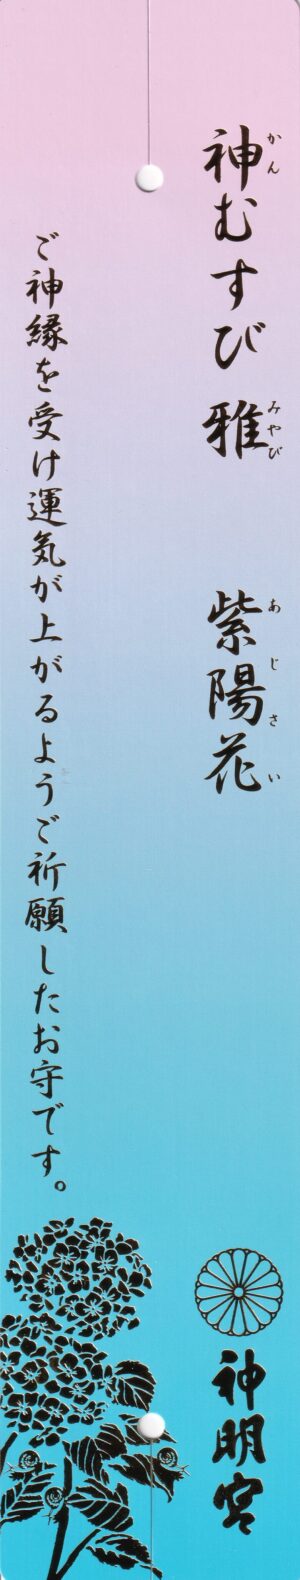 神むすび 雅 紫陽花
かん みやび あじさい
ご神縁を受け運気が上がるようご祈願したお守です。
神明宮